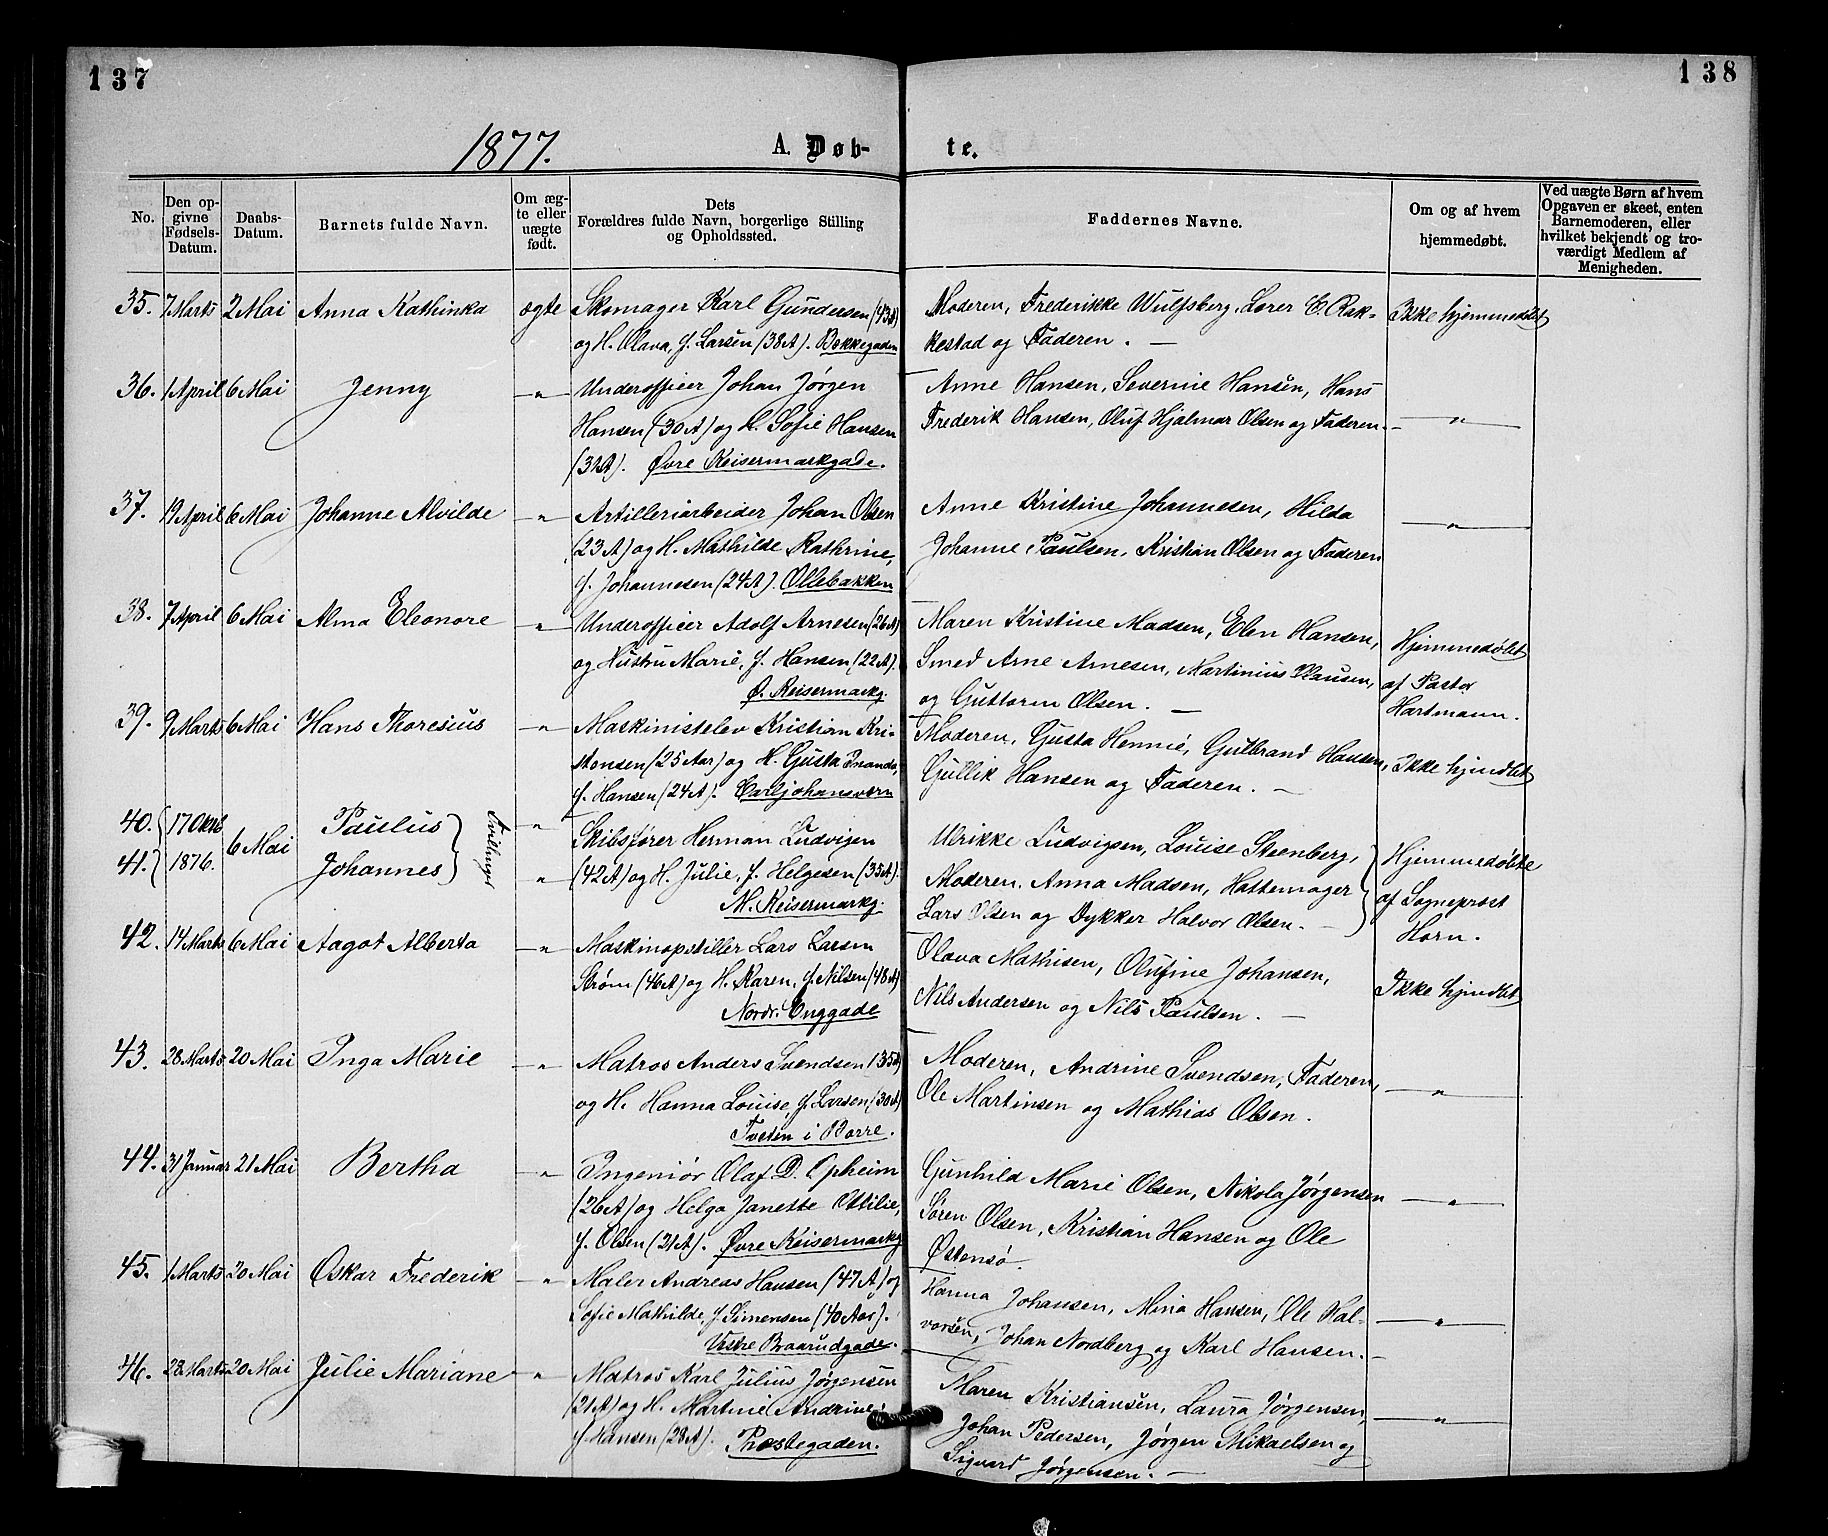 137
138
1877.
A. Døb-
te.
No.
Den op-
givne
Fødsels-
Datum.
Daabs-
Datum.
Barnets fulde Navn.
Om æg-
te eller
uægte
født.
Dets
Forældres fulde Navn, borgerlige Stilling
og Opholdssted.
Faddernes Navne.
Om og af hvem
hjemmedøbt.
Ved uægte Børn af hvem
Opgaven er skeet, enten
Barnemoderen, eller
hvilket bekjendt og tro-
værdigt Medlem af
Menigheden.
35. 7 Marts 2 Mai Anna Kathinka ægte Skomager Karl Gundersen (43A)
og H. Olava, f. Larsen (38A). Bekkegaden
Moderen, Frederikke Wulfsberg, Lærer E. Rak-
kestad og Faderen. —
Ikke hjemmedøbt
36. 1 April 6 Mai Jenny —"— Underofficer Johan Jørgen
Hansen (30A) og H. Sofie Hansen
(32A). Øvre Keisermarkgade.
Anne Hansen, Severine Hansen, Hans
Frederik Hansen, Oluf Hjalmar Olsen og Faderen. —
—"—
37. 19 April 6 Mai Johanne Alvilde —"— Artilleriarbeider Johan Olsen
(23A) og H. Mathilde Kathrine,
f. Johannesen (24A). Ollebakken
Anne Kristine Johannesen, Hilda
Johanne Paulsen, Kristian Olsen og Faderen
—"—
38. 7 April 6 Mai Alma Eleonore —"— Underofficer Adolf Arnesen (26A)
og Hustru Marie, f. Hansen (22A).
Ø. Keisermarkg.
Maren Kristine Madsen, Elen Hansen,
Smed Arne Arnesen, Martinius Clausen,
og Guttorm Olsen. —
Hjemmedøbt
af Pastor
Hartmann.
39. 9 Marts 6 Mai Hans Thoresius —"— Maskinistelev Kristian Kri-
stensen (25 Aar) og H. Gusta Inanda,
f. Hansen (24A). Carljohansværn
Moderen, Gusta Hennie, Gulbrand Hansen,
Gullik Hansen og Faderen. —
Ikke hjmdbt
40. 17 Oktb 6 Mai Paulus Tvillinger —"— Skibsfører Herman Ludvigsen
41. 1876. Johannes —"— (42A) og H. Julie, f. Helgesen (35A).
N. Keisermarkg.
Ulrikke Ludvigsen, Louise Steenberg,
Moderen, Anna Madsen, Hattemager
Lars Olsen og Dykker Halvor Olsen. —
Hjemmedøbte
af Sogneprest
Horn.
42. 14 Marts 6 Mai Aagot Alberta —"— Maskinopstiller Lars Larsen
Strøm (46A) og H. Karen, f. Nilsen (48A)
Nordr. Enggade
Olava Mathisen, Olufine Johansen,
Nils Andersen og Nils Paulsen. —
Ikke hjmdbt
43. 28 Marts 20 Mai Inga Marie —"— Matros Anders Svendsen (35A)
og H. Hanna Louise, f. Larsen (30A)
Tveten i Borre.
Moderen, Andrine Svendsen, Faderen,
Ole Martinsen og Mathias Olsen.
—"—
44. 31 Januar 21 Mai Bertha —"— Ingeniør Olaf D. Opheim
(26A) og Helga Janette Ottilie,
f. Olsen (21A). Øvre Keisermarkg
Gunhild Marie Olsen, Nikola Jørgensen
Søren Olsen, Kristian Hansen og Ole
Østensø.
—"—
45. 1 Marts 20 Mai Oskar Frederik —"— Maler Andreas Hansen (47A) og
Sofie Mathilde, f. Simensen (40 Aar).
Vestre Braarudgade.
Hanna Johansen, Mina Hansen, Ole Hal-
vorsen, Johan Nordberg og Karl Hansen. —
—"—
46. 28 Marts 20 Mai Julie Mariane —"— Matros Karl Julius Jørgensen
(21A) og H. Martine Andrine,
f. Hansen (28A). Præstegaden.
Maren Kristiansen, Laura Jørgensen,
Johan Pedersen, Jørgen Mikaelsen og
Sigvart Jørgensen. —
—"—